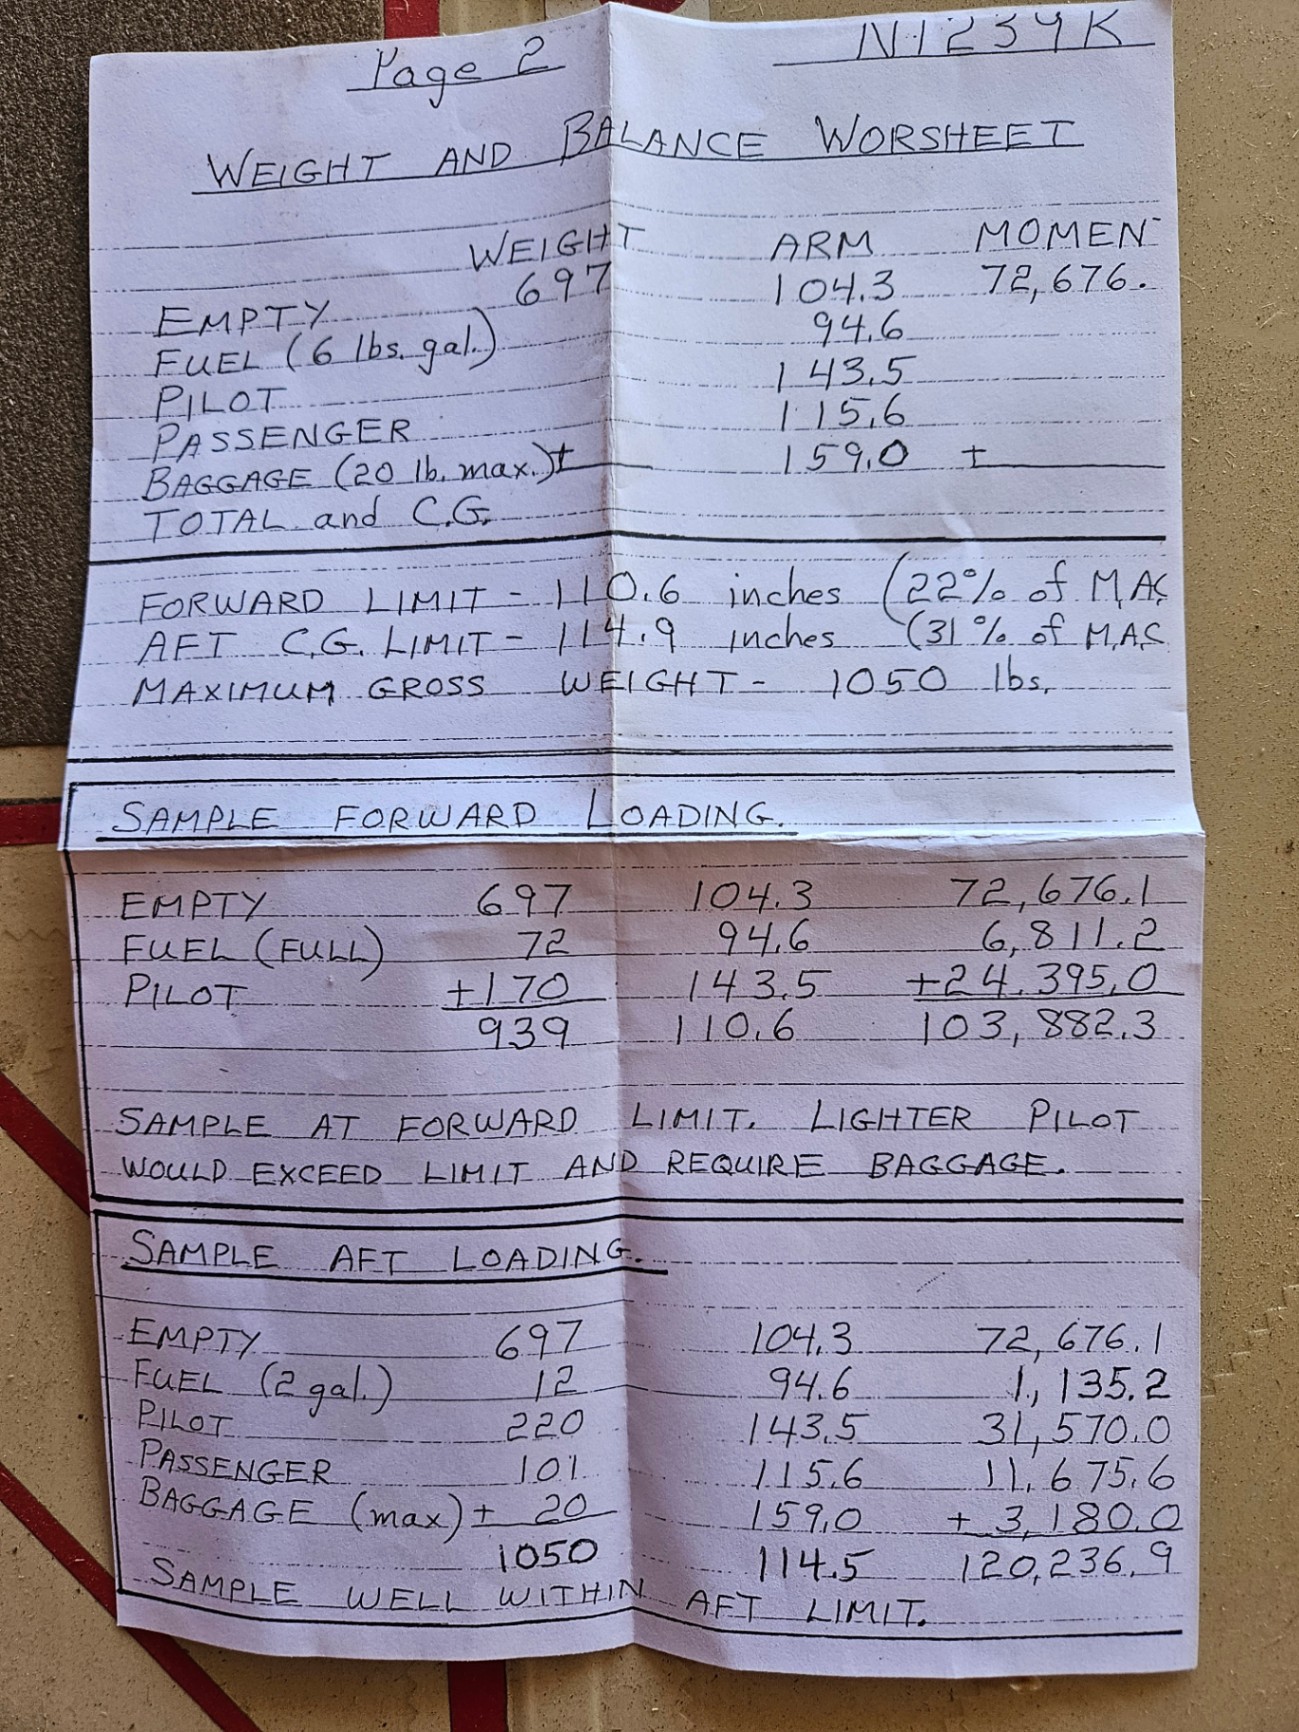 Page 2 N1234K
WEIGHT AND BALANCE WORSHEET
WEIGHT ARM MOMEN
EMPTY 697 104.3 72,676.
FUEL (6 lbs. gal.) 94.6
PILOT 143.5
PASSENGER 115.6
BAGGAGE (20 lb. max.) + 159.0 +
TOTAL and C.G.
FORWARD LIMIT - 110.6 inches (22% of M.A.C.
AFT C.G. LIMIT - 114.9 inches (31% of M.A.C
MAXIMUM GROSS WEIGHT - 1050 lbs.
SAMPLE FORWARD LOADING.
EMPTY 697 104.3 72,676.1
FUEL (FULL) 72 94.6 6,811.2
PILOT +170 143.5 +24.395.0
939 110.6 103,882.3
SAMPLE AT FORWARD LIMIT. LIGHTER PILOT
WOULD EXCEED LIMIT AND REQUIRE BAGGAGE.
SAMPLE AFT LOADING.
EMPTY 697 104.3 72,676.1
FUEL (2 gal.) 12 94.6 1,135.2
PILOT 220 143.5 31,570.0
PASSENGER 101 115.6 11,675.6
BAGGAGE (max) + 20 159.0 + 3,180.0
1050 114.5 120,236.9
SAMPLE WELL WITHIN AFT LIMIT.